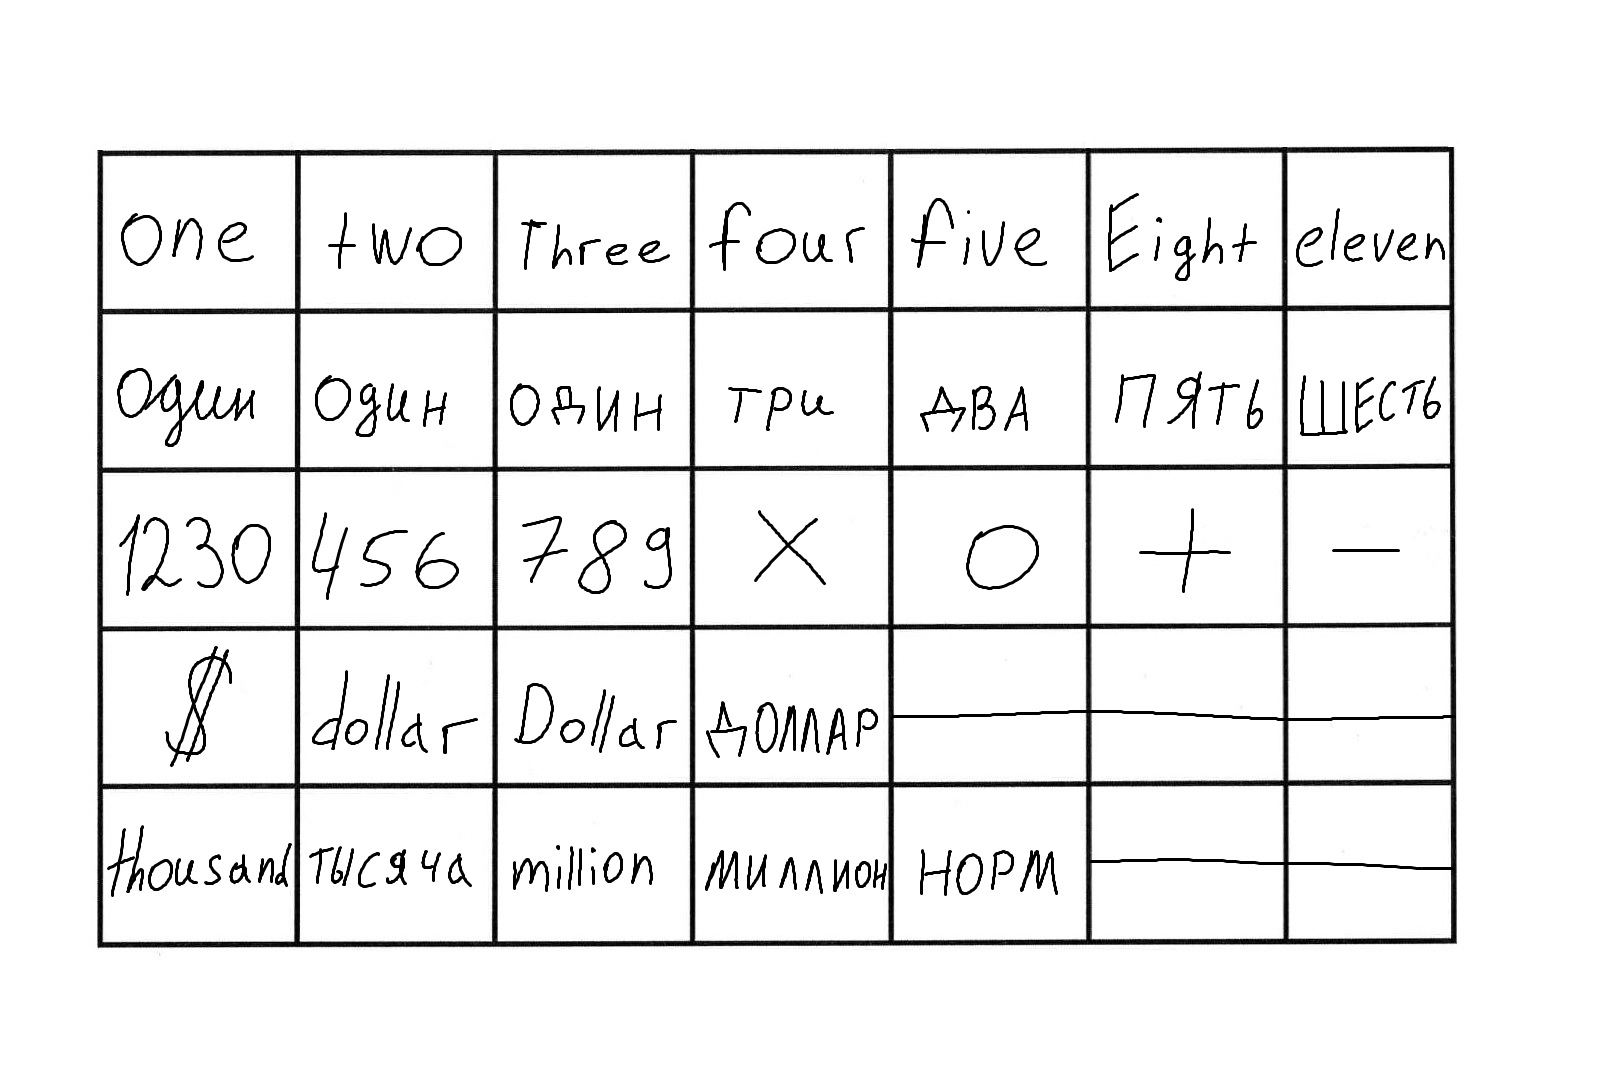 one two Three four five Eight eleven
один один один три ДВА ПЯТЬ ШЕСТЬ
1230 456 789 X O + —
$ dollar Dollar ДОЛЛАР
thousand тысяча million миллион НОРМ